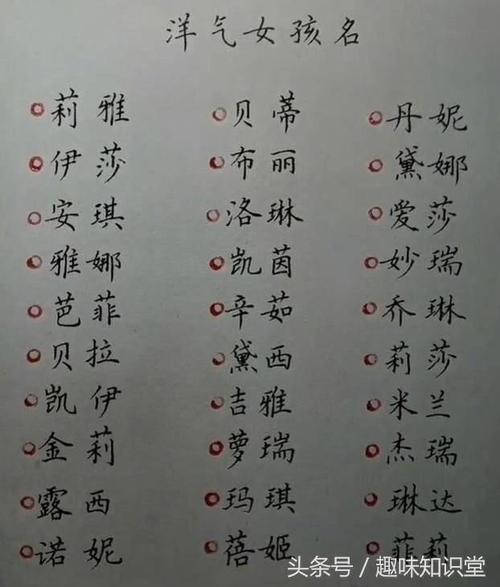 洋气女孩名
莉雅 贝蒂 丹妮
伊莎 布丽 黛娜
安琪 洛琳 爱莎
雅娜 凯茵 妙瑞
芭菲 辛茹 乔琳
贝拉 黛西 莉莎
凯伊 吉雅 米兰
金莉 萝瑞 杰瑞
露西 玛琪 琳达
诺妮 蓓姬 菲莉
头条号/趣味知识堂